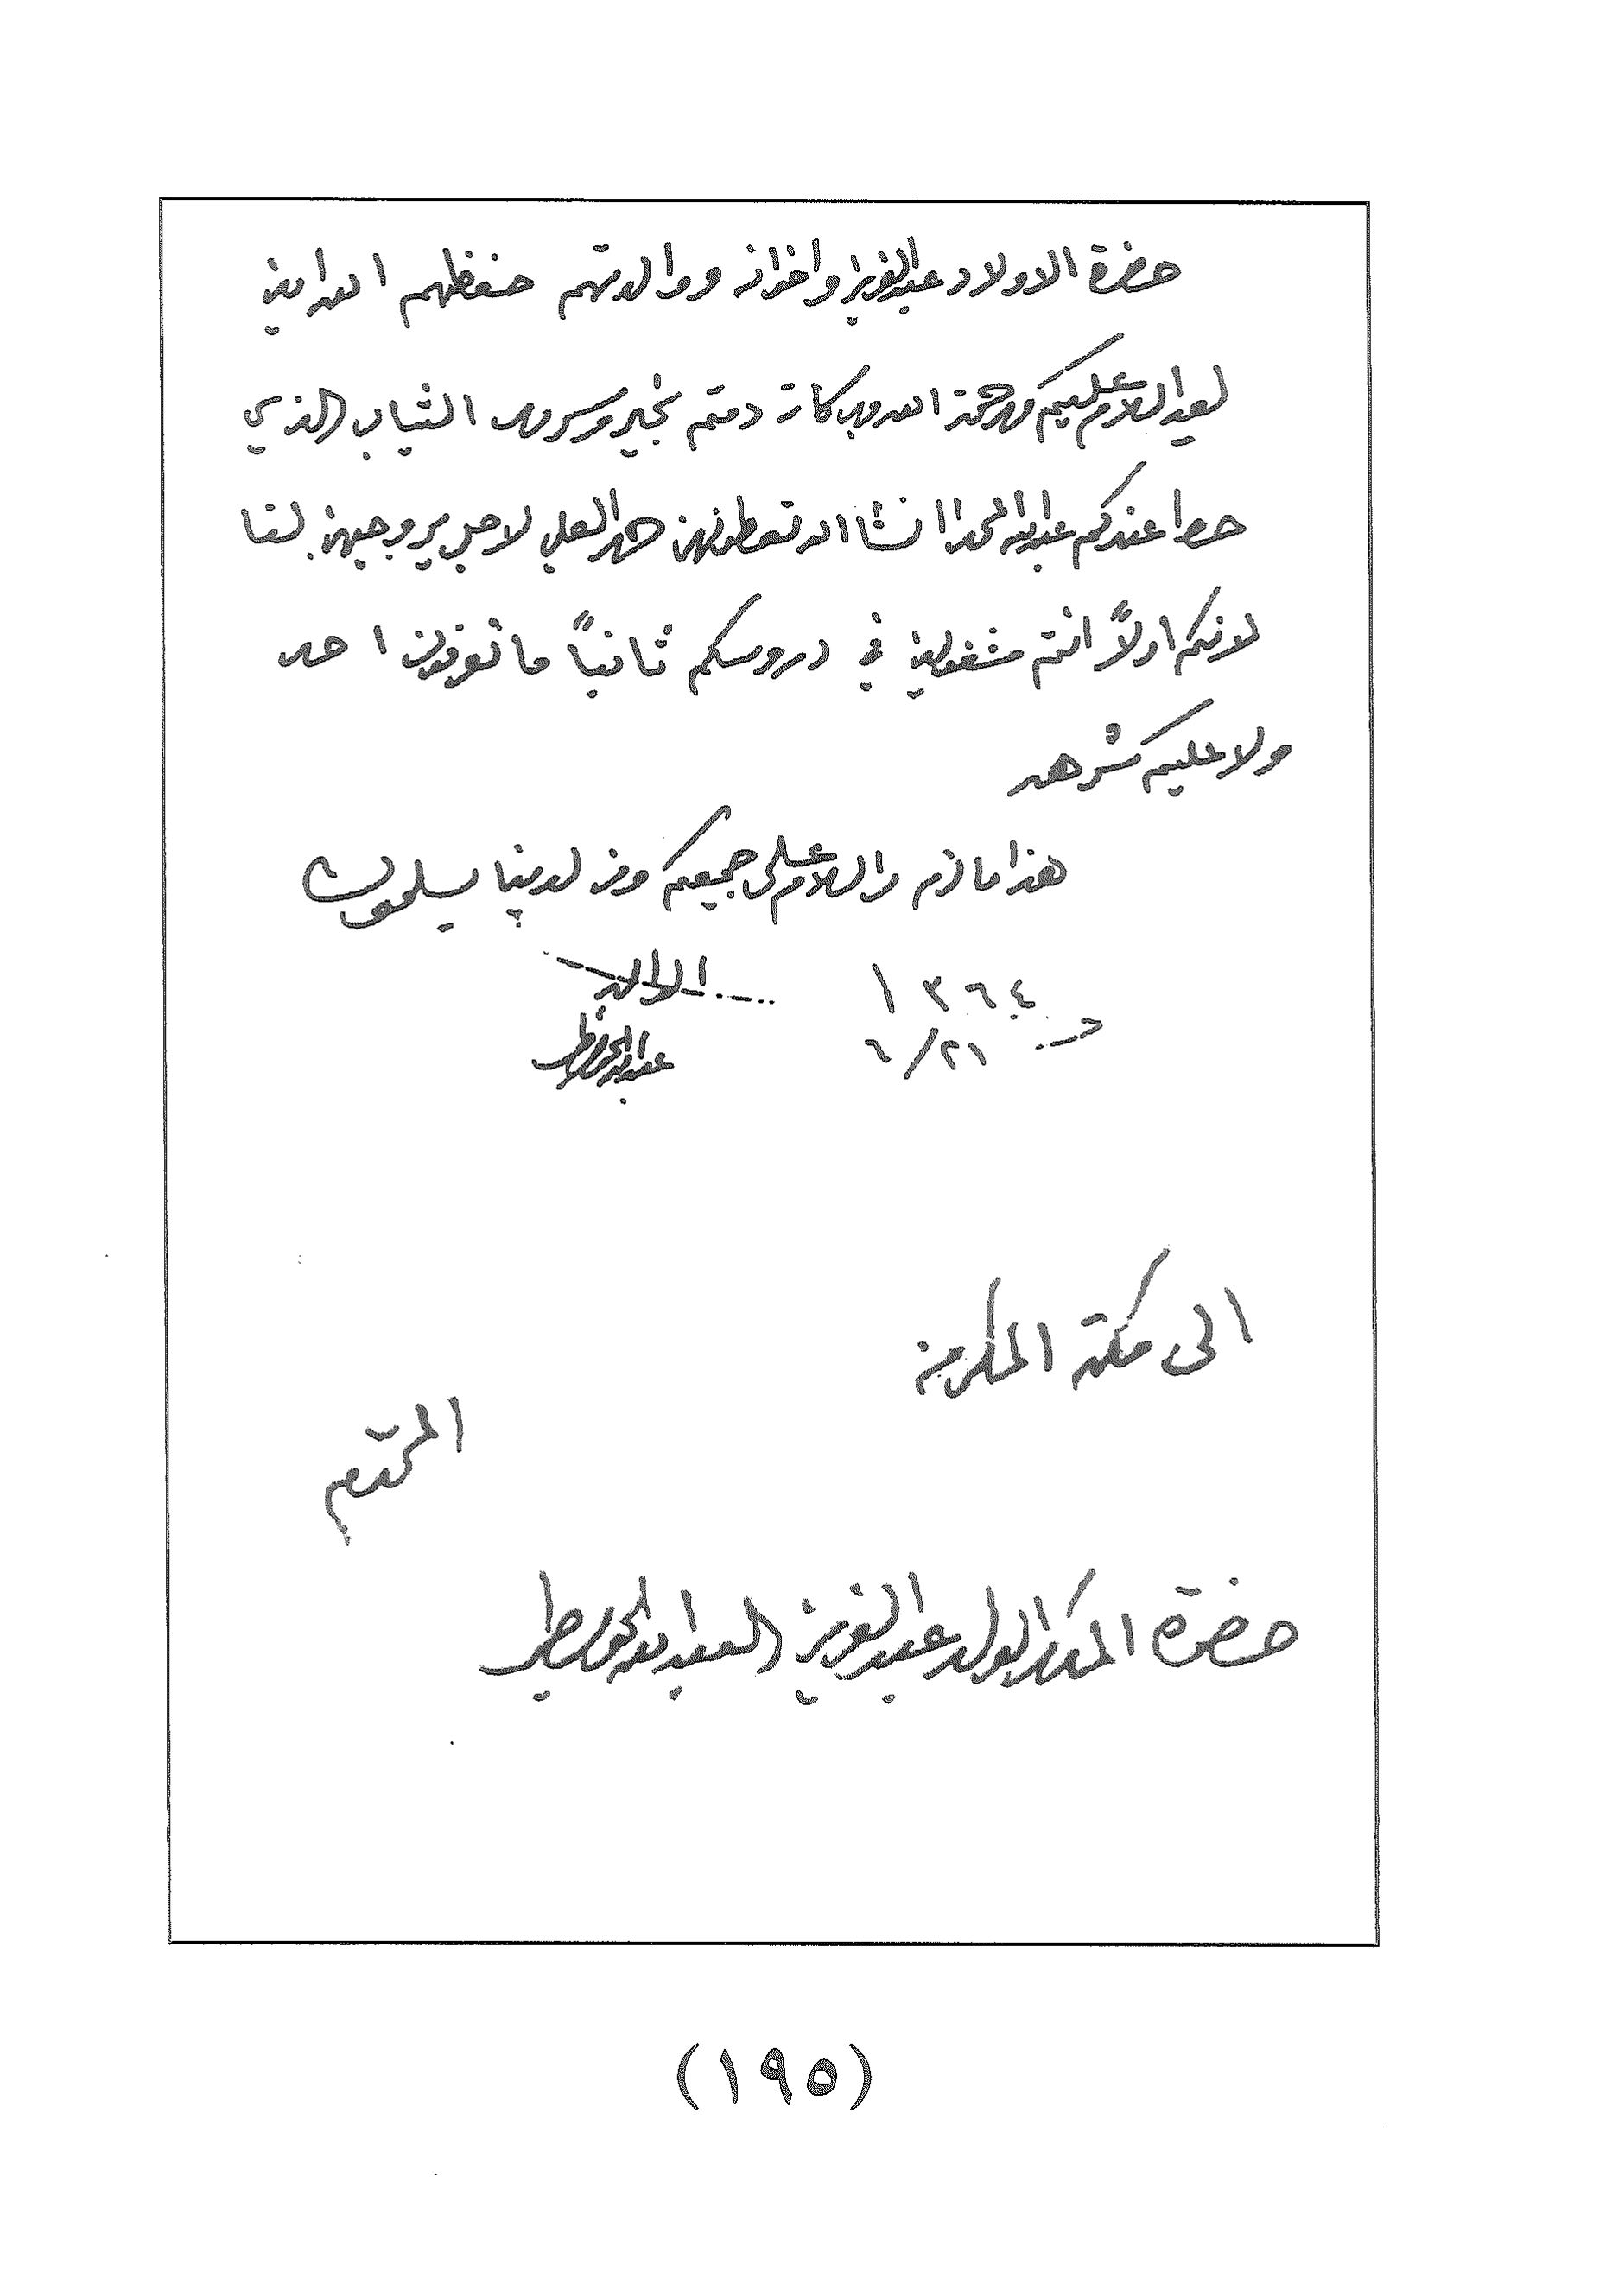 حضرة الاولاد عبدالعزيز واخوانه ووالدتهم حفظهم الله امين
بعد السلام عليكم ورحمة الله وبركاته دمتم بخير وسرور الثياب الذي
حط عندكم عبدالله المحمد انشا الله تعطونهن حمد العلي لاجل يروجهن لنا
لانكم اولاً انتم مشغولين في دروسكم ثانياً ما تعرفون احد
ولا عليكم شرهه
هذا مالزم والسلام على جميعكم ومن لدينا يسلمون
١٣٦٤ الوالد
٦/٢١ عبدالله الخويطر
الى مكة المكرمة
المحترم
حضرة المكرم الولد عبدالعزيز العبدالله الخويطر
(١٩٥)